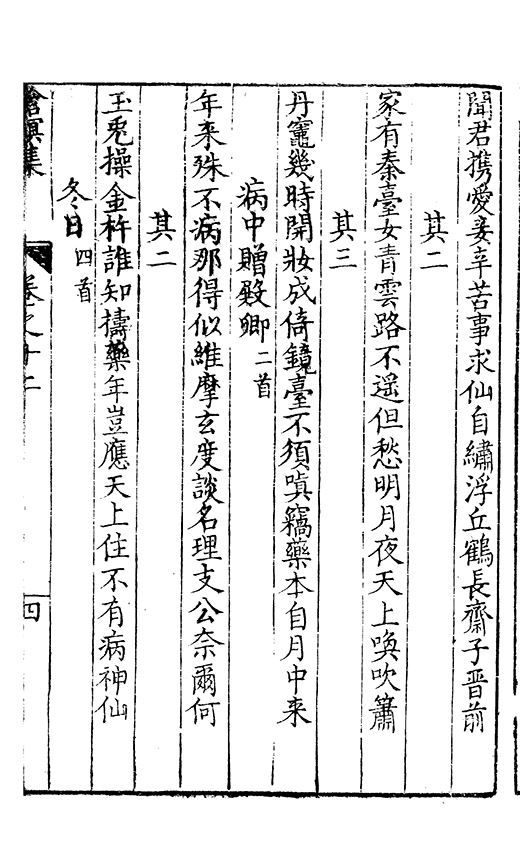 聞君携愛妾辛苦事求仙自繡浮丘鶴長齋子晋前
其二
家有秦臺女青雲路不遥但愁明月夜天上喚吹簫
其三
丹竈幾時開妝成倚鏡臺不須嗔竊藥本自月中来
病中贈殿卿二首
年来殊不病那得似維摩玄度談名理支公奈爾何
其二
玉兎操金杵誰知擣藥年豈應天上住不有病神仙
冬日四首
滄溟集 卷之十二 四